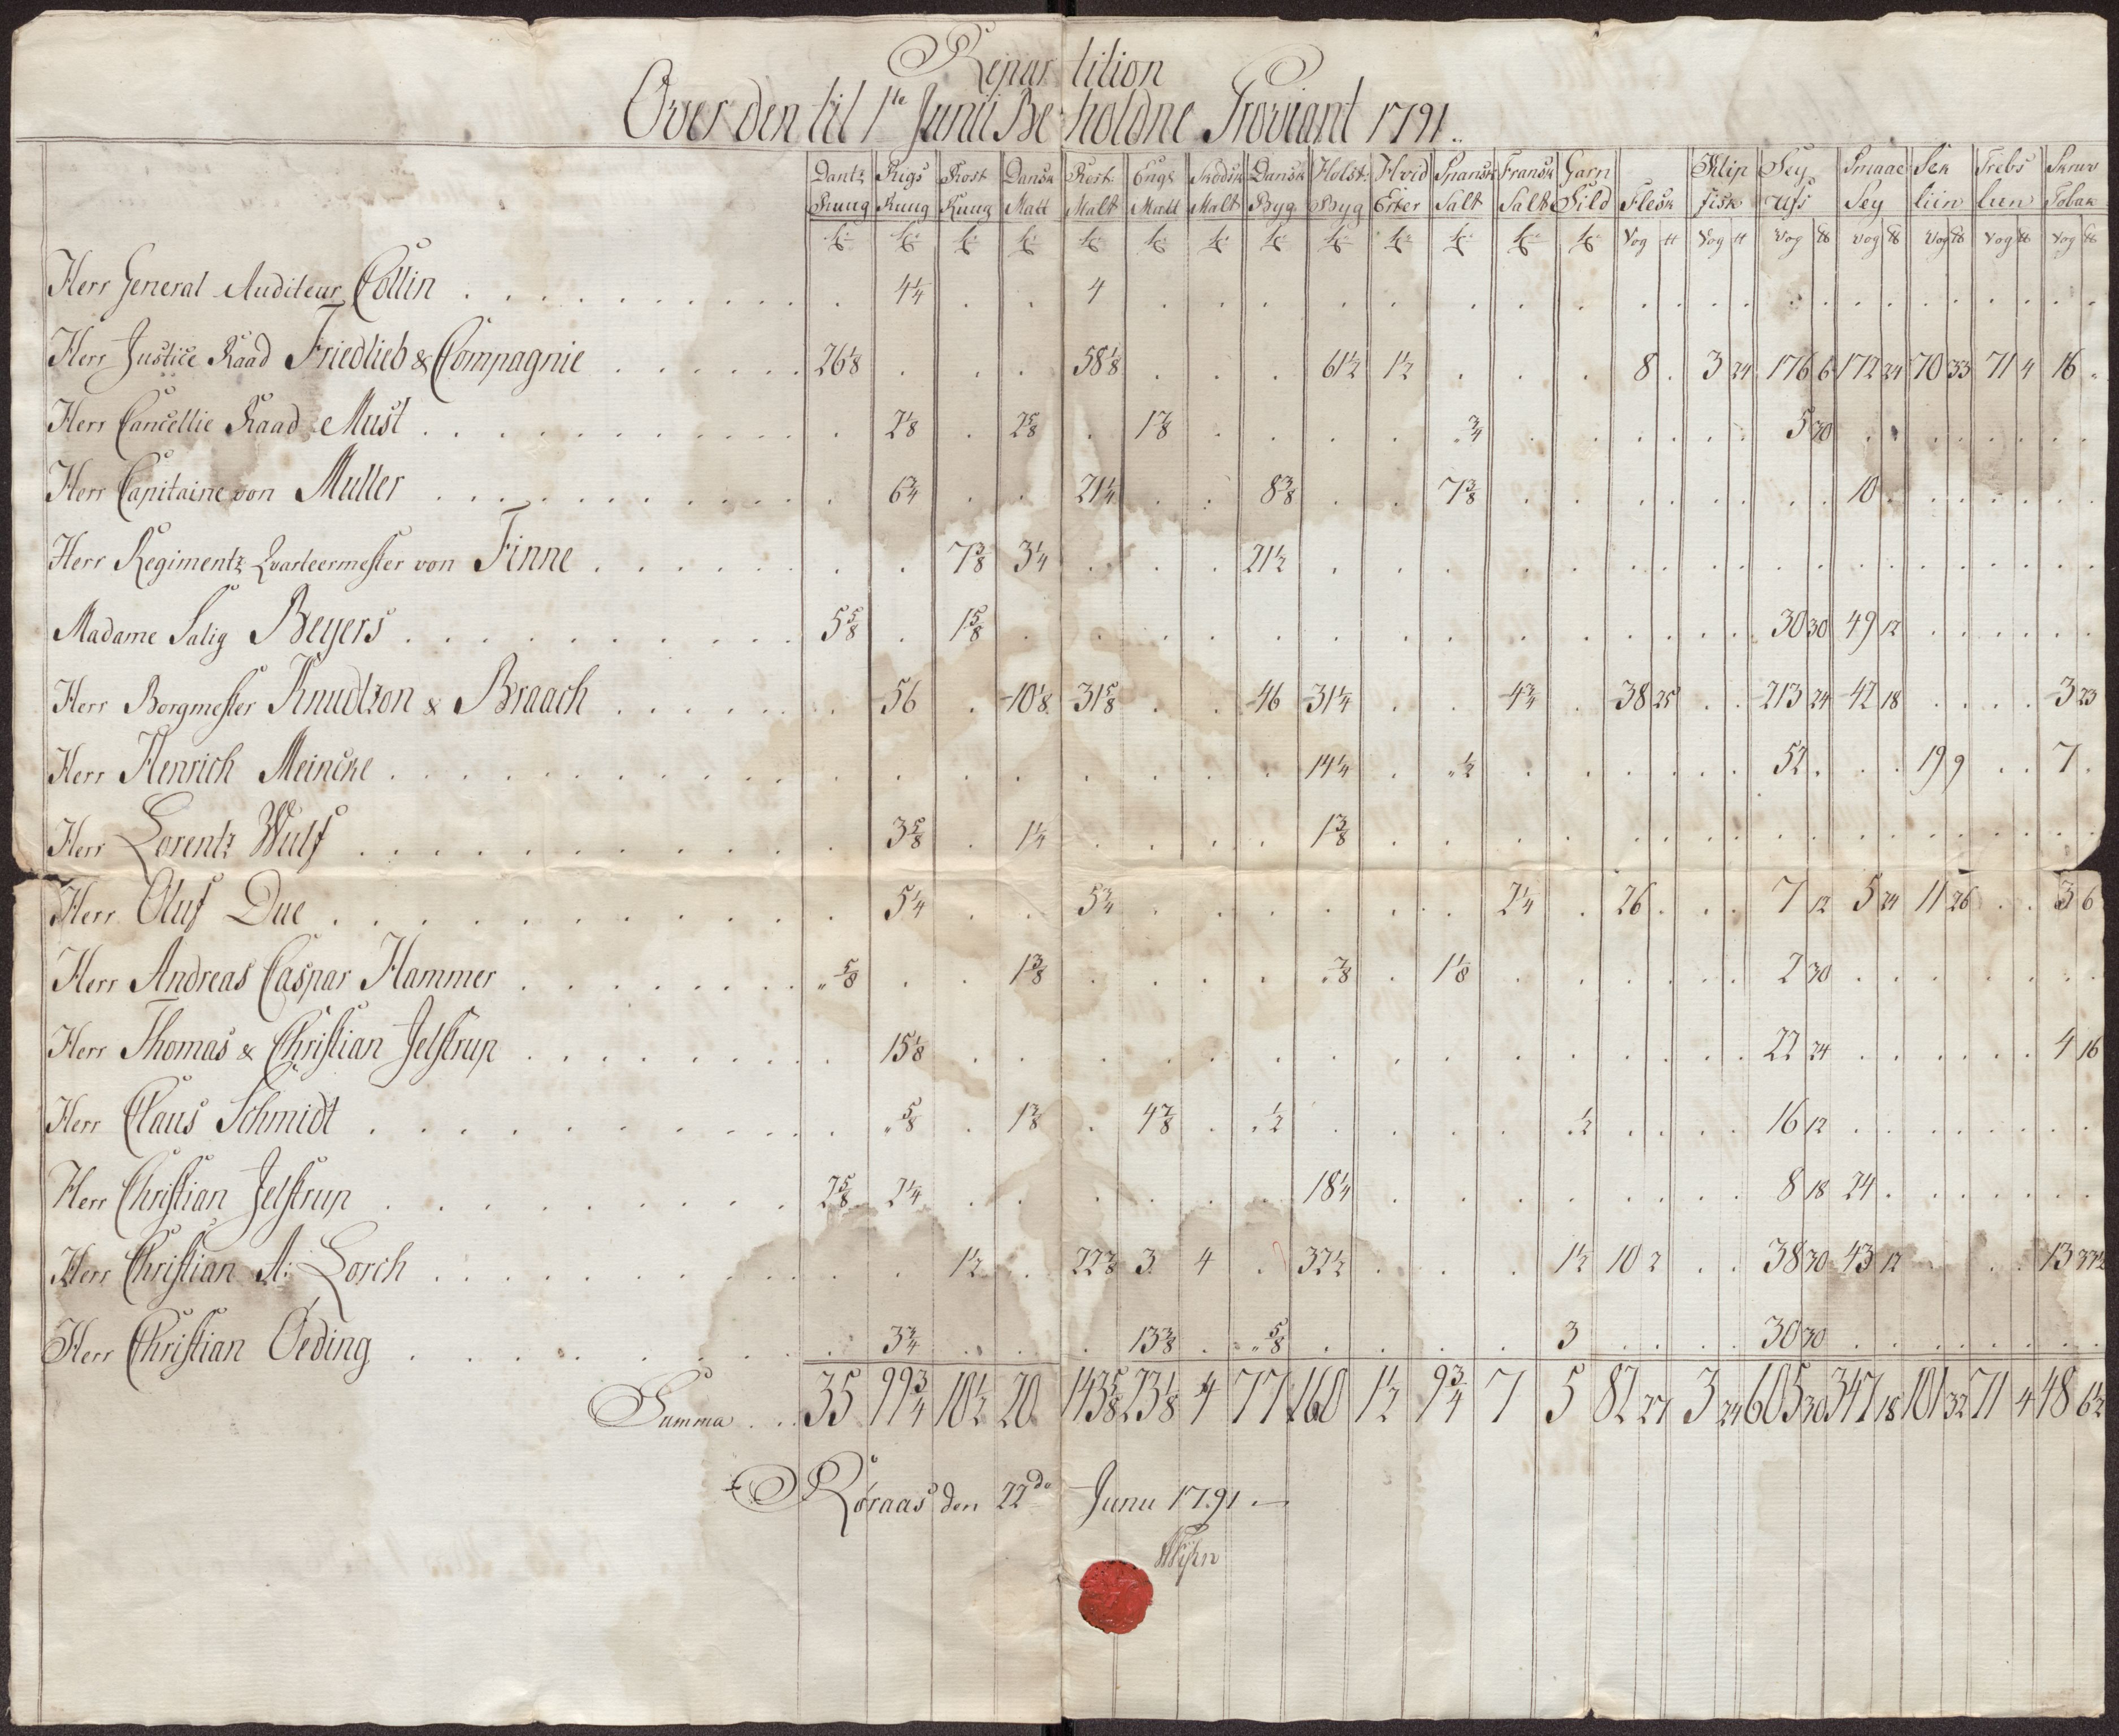 Repartition
Over den til 1te Junii Beholdne Proviant 1791.
Dantz Rigs Rost Dansk Rost: Engs Skodsk Dansk Holst: Hvid Spansk Fransk Garn Klip Sey Smaae Sek Trebs Skruv
Rung Rung Rung Malt Malt Malt Malt Byg Byg Erter Salt Salt Sild Flesk fisk ufs Sey liin liin Tobak
Vog Vog Vog Vog Vog Vog Vog
Herr General Auditeur Collin 4 1/4 4
Herr Justice Raad Friedlieb & Compagnie 26 1/8 58 1/8 61 1/2 1 1/2 8 3 24 176 6 172 24 70 33 71 4 16
Herr Cancellie Raad Must 2 1/8 2 5/8 1 7/8 3/4 5 30
Herr Capitaine von Muller 6 3/4 21 1/4 8 3/8 7 3/8 10
Herr Regimentz Qvarteermester von Finne 7 3/8 3 1/4 21 1/2
Madame Salig Beyers 5 5/8 1 5/8 30 30 49 12
Herr Borgmester Knudtzon & Braach 56 10 1/8 31 5/8 46 31 1/4 4 3/4 38 25 213 24 42 18 3 23
Herr Henrich Meincke 14 1/4 1/2 52 19 9 7
Herr Lorentz Wulf 3 5/8 1 1/4 1 3/8
Herr Oluf Due 5 1/4 5 3/4 2 1/4 26 7 12 5 24 11 26 3 6
Herr Andreas Caspar Hammer 5/8 1 3/8 7/8 1 1/8 2 30
Herr Thomas & Christian Jelstrup 15 1/8 22 24 4 16
Herr Claus Schmidt 5/8 1 3/8 4 7/8 1/2 1/2 16 12
Herr Christian Jelstrup 2 5/8 2 1/4 18 1/4 8 18 24
Herr Christian A: Lorch 1 1/2 22 7/8 3 4 32 1/2 1 1/2 10 2 38 30 43 12 13 33 1/2
Herr Christian Oeding 3 3/4 13 3/8 5/8 3 30 30
Summa 35 99 3/4 10 1/2 20 143 5/8 23 1/8 4 77 160 1 1/2 9 3/4 7 5 82 27 3 24 605 30 347 18 101 32 71 4 48 6 1/2
Röraas den 22de Junii 1791